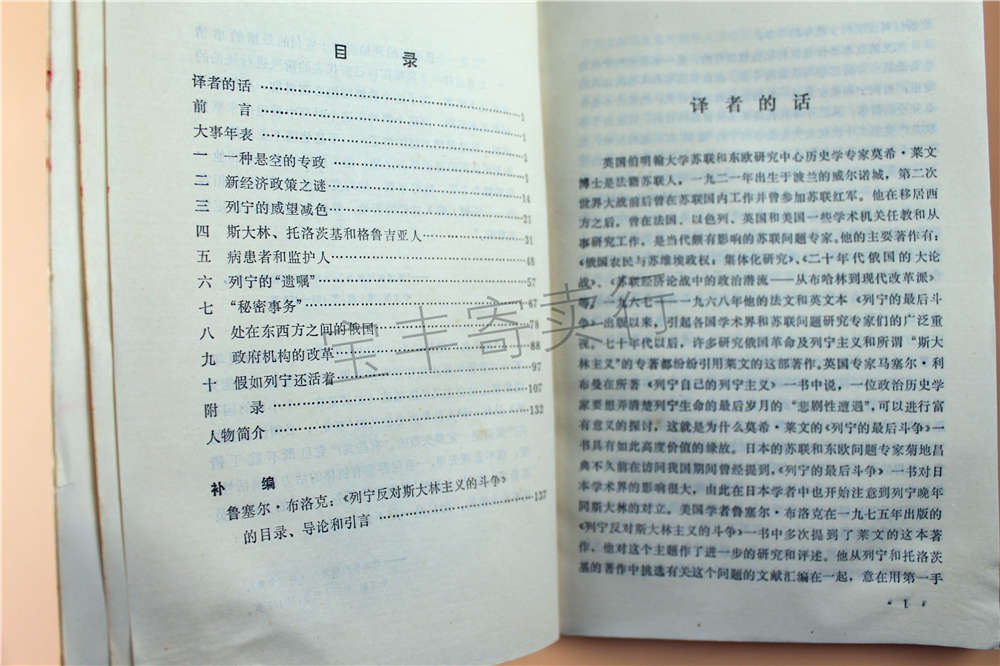 目 录
译者的话 …… 1
前 言 …… 1
大事年表 …… 1
一 一种悬空的专政 …… 1
二 新经济政策之谜 …… 14
三 列宁的威望减色 …… 21
四 斯大林、托洛茨基和格鲁吉亚人 …… 31
五 病患者和监护人 …… 48
六 列宁的“遗嘱” …… 57
七 “秘密事务” …… 67
八 处在东西方之间的俄国 …… 78
九 政府机构的改革 …… 88
十 假如列宁还活着 …… 97
附 录 …… 107
人物简介 …… 132
补 编
鲁塞尔·布洛克:《列宁反对斯大林主义的斗争》
的目录、导论和引言 …… 137
译者的话
英国伯明翰大学苏联和东欧研究中心历史学专家莫希·莱文
博士是法籍苏联人,一九二一年出生于波兰的威尔诺城,第二次
世界大战前后曾在苏联国内工作并曾参加苏联红军。他在移居西
方之后,曾在法国、以色列、英国和美国一些学术机关任教和从
事研究工作,是当代颇有影响的苏联问题专家。他的主要著作有:
《俄国农民与苏维埃政权:集体化研究》、《二十年代俄国的大论
战》、《苏联经济论战中的政治潜流——从布哈林到现代改革派》
等,一九六七——一九六八年他的法文和英文本《列宁的最后斗
争》一出版以来,引起各国学术界和苏联问题研究专家们的广泛重
视。七十年代以后,许多研究俄国革命及列宁主义和所谓“斯大
林主义”的专著都纷纷引用莱文的这部著作。英国专家马塞尔·利
布曼在所著《列宁自己的列宁主义》一书中说,一位政治历史学
家要想弄清楚列宁生命的最后岁月的“悲剧性遭遇”,可以进行富
有意义的探讨,这就是为什么莫希·莱文的《列宁的最后斗争》一
书具有如此高度价值的缘故。日本的苏联和东欧问题专家菊地昌
典不久前在访问我国期间曾经提到,《列宁的最后斗争》一书对日
本学术界的影响很大,由此在日本学者中也开始注意到列宁晚年
同斯大林的对立。美国学者鲁塞尔·布洛克在一九七五年出版的
《列宁反对斯大林主义的斗争》一书中多次提到了莱文的这本著
作,他对这个主题作了进一步的研究和评述。他从列宁和托洛茨
基的著作中挑选有关这个问题的文献汇编在一起,意在用第一手
· 1 ·
宝丰寄卖行